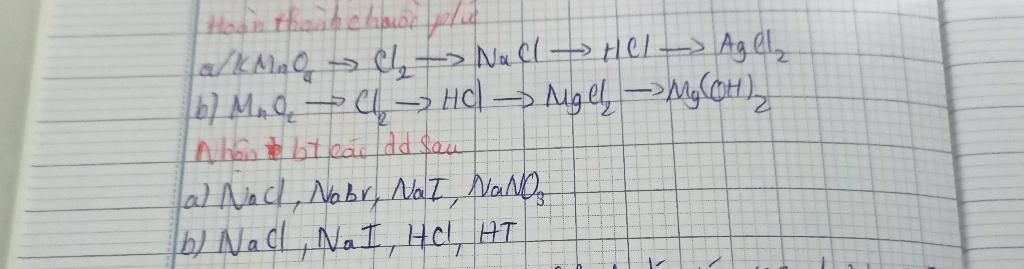 Hoàn thành chuỗi pư
a/ KMnO4 → Cl2 → NaCl → HCl → AgCl2
b) MnO2 → Cl2 → HCl → MgCl2 → Mg(OH)2
Nhận bt các dd sau
a) NaCl, NaBr, NaI, NaNO3
b) NaCl, NaI, HCl, HI